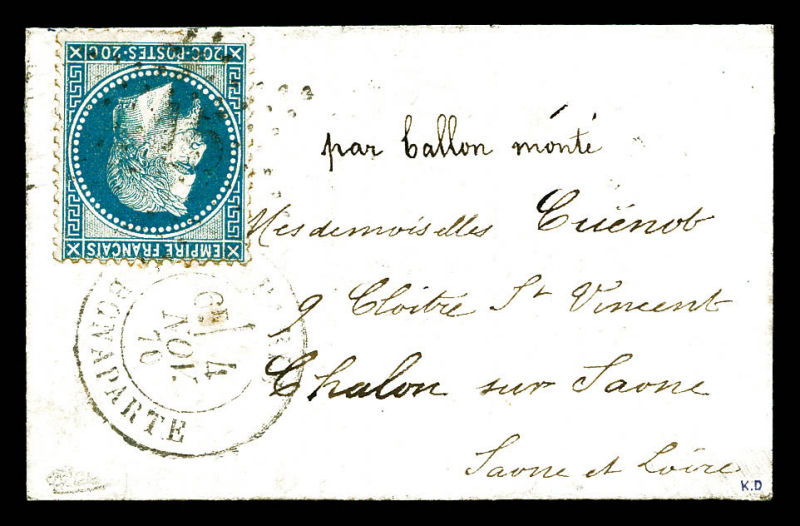 20 C · POSTES · 20 C
EMPIRE FRANÇAIS
par ballon monté
Mesdemoiselles Cuënot
9 Cloître St Vincent
Chalon sur Saone
Saone et Loire
BONAPARTE
4
NOV
70
K.D